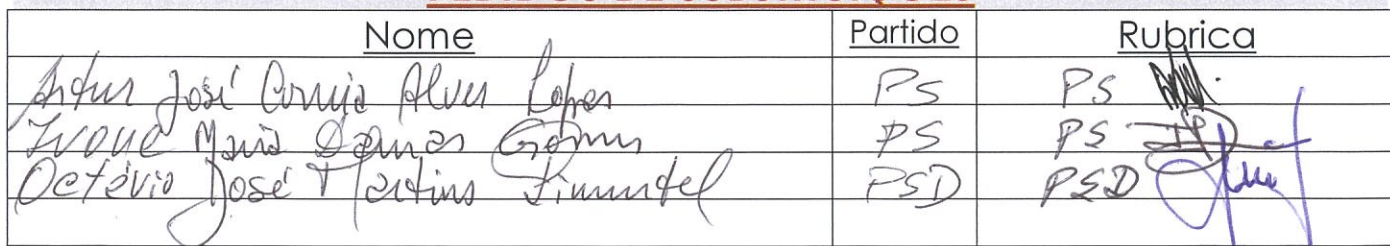 Nome Partido Rubrica
Artur José Correia Alves Lopes PS PS
Ivone Maria Damas Gomes PS PS
Octávio José Martins Pimentel PSD PSD